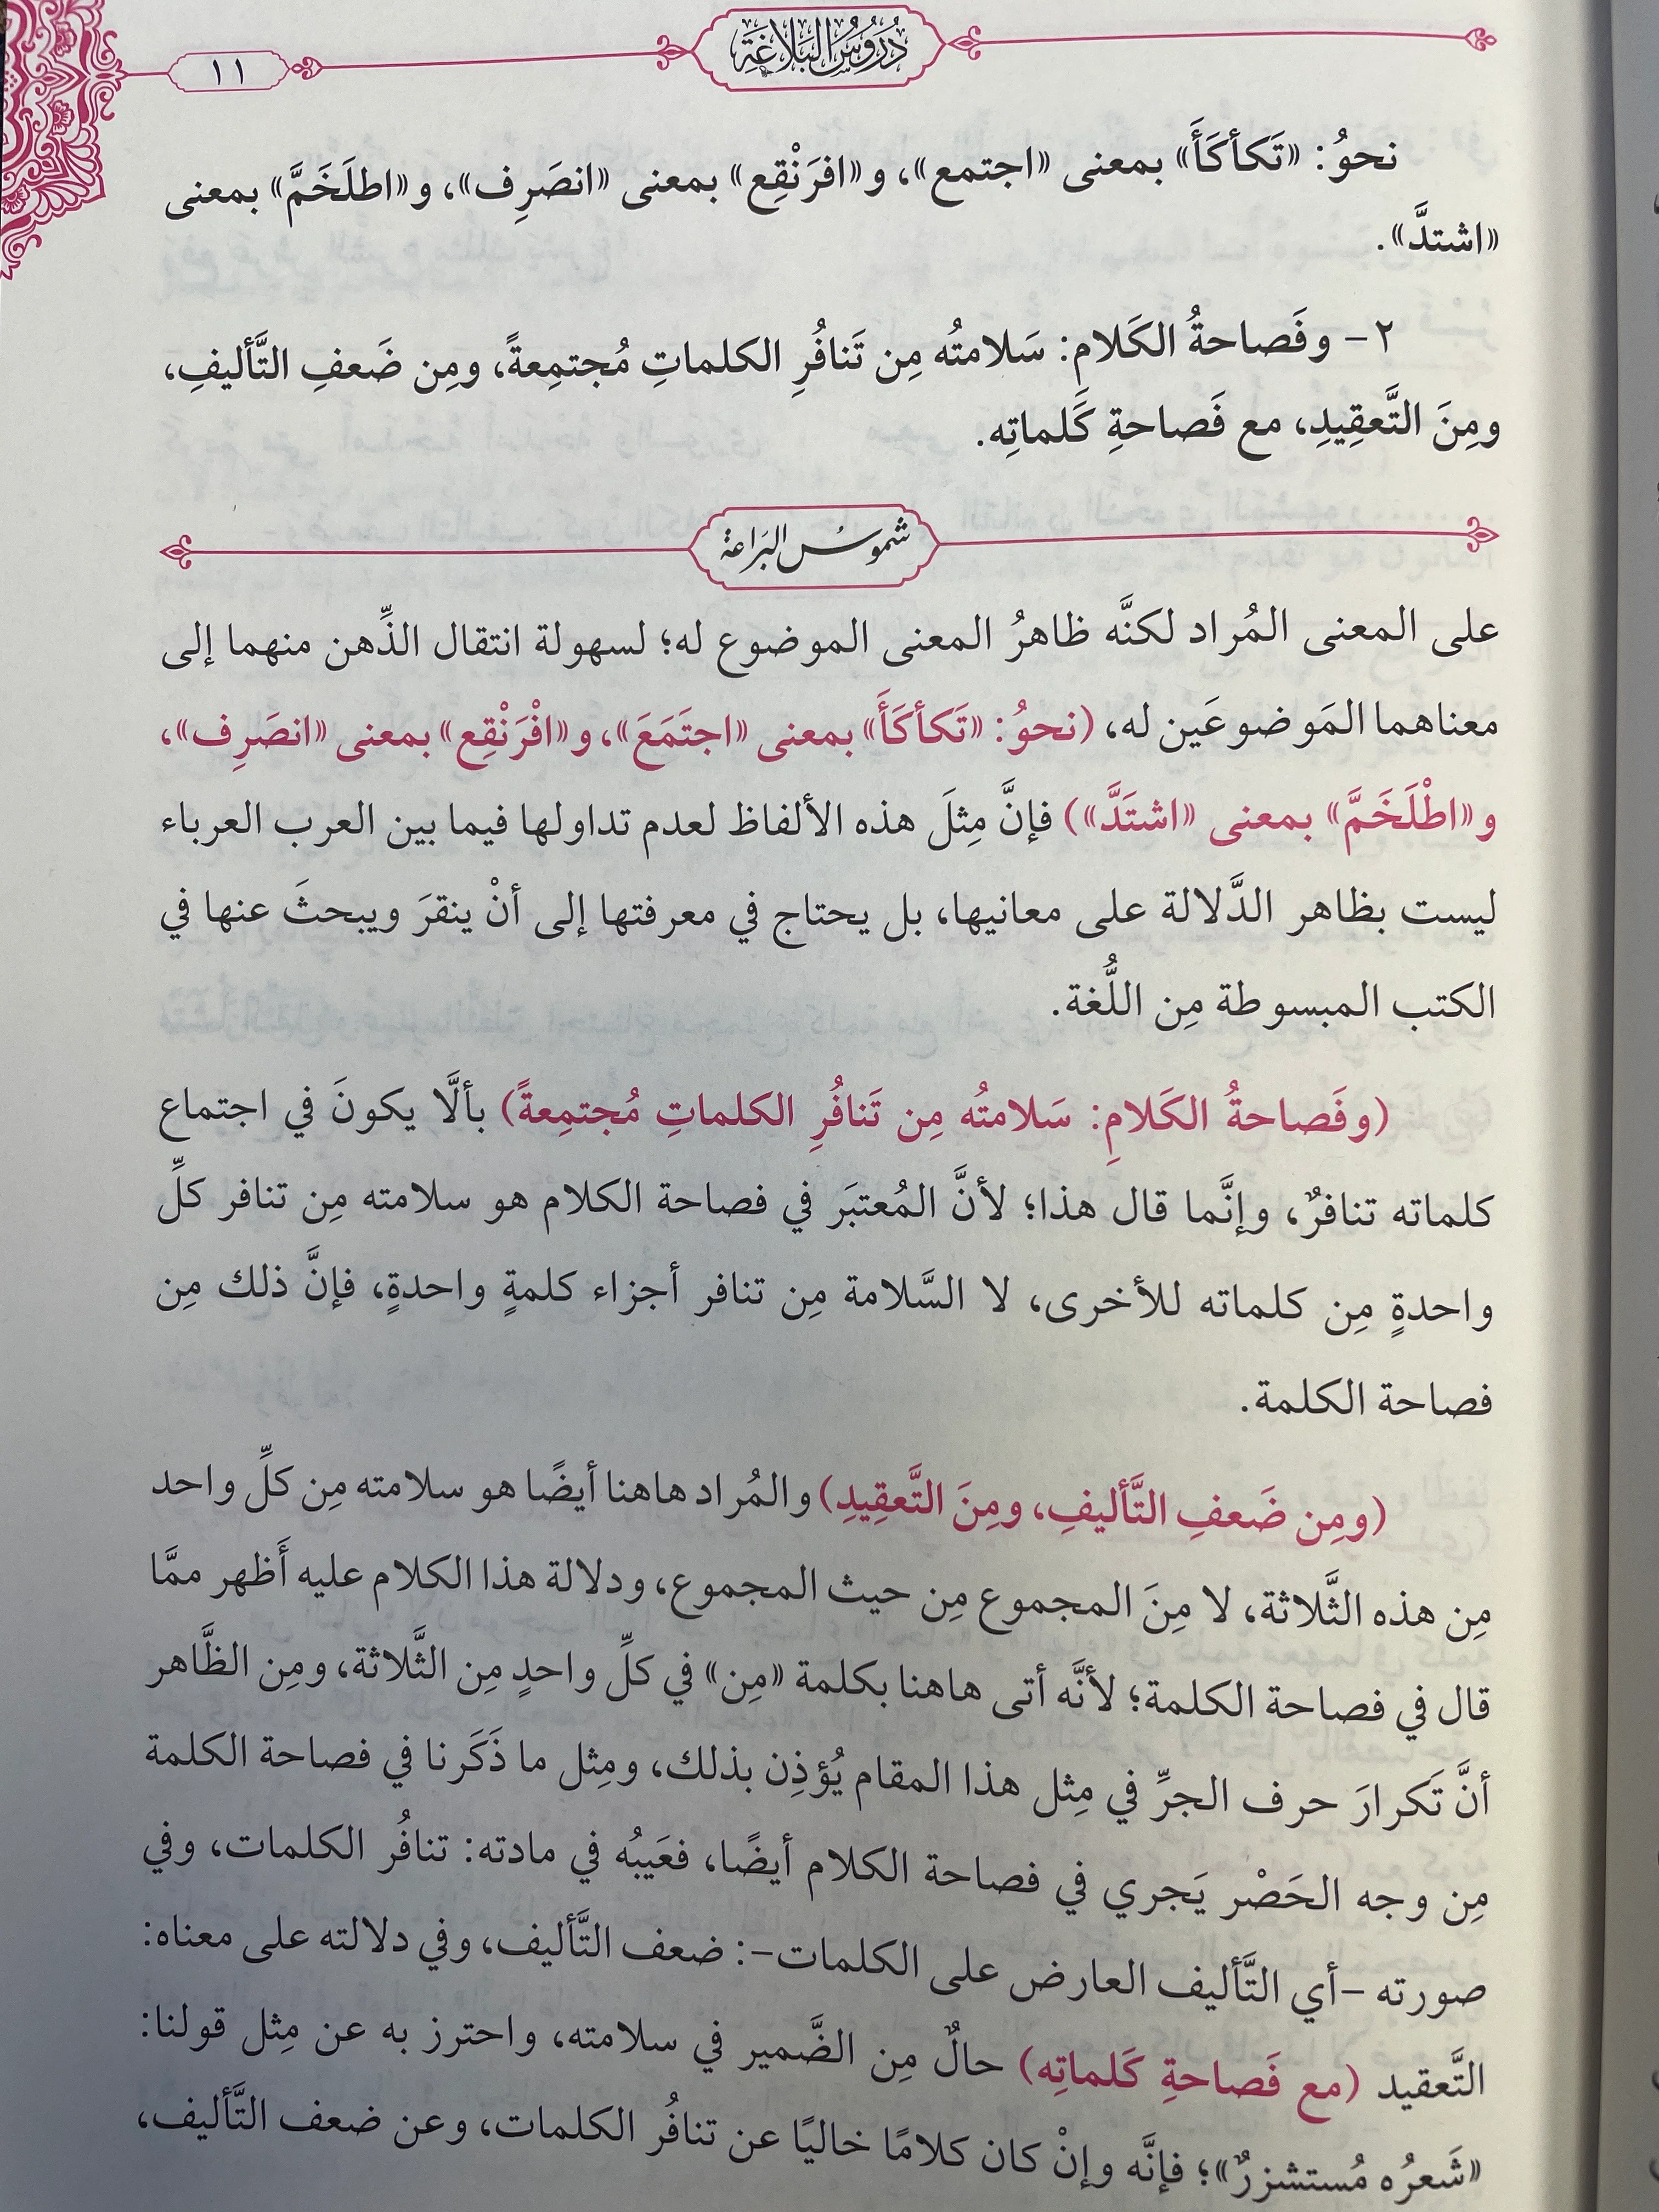 دُرُوسُ البَلَاغَةِ
١١
نحوُ: «تَكأكَأَ» بمعنى «اجتمع»، و«افرَنْقِع» بمعنى «انصَرِف»، و«اطلَخَمَّ» بمعنى
«اشتدَّ».
٢- وفَصاحةُ الكَلام: سَلامتُه مِن تَنافُرِ الكلماتِ مُجتمِعةً، ومِن ضَعفِ التَّأليفِ،
ومِنَ التَّعقِيدِ، مع فَصاحةِ كَلماتِه.
شموسُ البَرَاعة
على المعنى المُراد لكنَّه ظاهرُ المعنى الموضوع له؛ لسهولة انتقال الذِّهن منهما إلى
معناهما المَوضوعَين له، (نحوُ: «تَكأكَأَ» بمعنى «اجتَمَعَ»، و«افْرَنْقِع» بمعنى «انصَرِف»،
و«اطْلَخَمَّ» بمعنى «اشتَدَّ») فإنَّ مِثلَ هذه الألفاظ لعدم تداولها فيما بين العرب العرباء
ليست بظاهر الدَّلالة على معانيها، بل يحتاج في معرفتها إلى أنْ ينقرَ ويبحثَ عنها في
الكتب المبسوطة مِن اللُّغة.
(وفَصاحةُ الكَلامِ: سَلامتُه مِن تَنافُرِ الكلماتِ مُجتمِعةً) بألَّا يكونَ في اجتماع
كلماته تنافرٌ، وإنَّما قال هذا؛ لأنَّ المُعتبَر في فصاحة الكلام هو سلامته مِن تنافر كلِّ
واحدةٍ مِن كلماته للأخرى، لا السَّلامة مِن تنافر أجزاء كلمةٍ واحدةٍ، فإنَّ ذلك مِن
فصاحة الكلمة.
(ومِن ضَعفِ التَّأليفِ، ومِنَ التَّعقِيدِ) والمُراد هاهنا أيضًا هو سلامته مِن كلِّ واحد
مِن هذه الثَّلاثة، لا مِنَ المجموع مِن حيث المجموع، ودلالة هذا الكلام عليه أَظهر ممَّا
قال في فصاحة الكلمة؛ لأنَّه أتى هاهنا بكلمة «مِن» في كلِّ واحدٍ مِن الثَّلاثة، ومِن الظَّاهر
أنَّ تَكرارَ حرف الجرِّ في مِثل هذا المقام يُؤذِن بذلك، ومِثل ما ذَكَرنا في فصاحة الكلمة
مِن وجه الحَصْر يَجري في فصاحة الكلام أيضًا، فعَيبُه في مادته: تنافُر الكلمات، وفي
صورته -أي التَّأليف العارض على الكلمات-: ضعف التَّأليف، وفي دلالته على معناه:
التَّعقيد (مع فَصاحةِ كَلماتِه) حالٌ مِن الضَّمير في سلامته، واحترز به عن مِثل قولنا:
«شَعرُه مُستشزرٌ»؛ فإنَّه وإنْ كان كلامًا خاليًا عن تنافُر الكلمات، وعن ضعف التَّأليف،